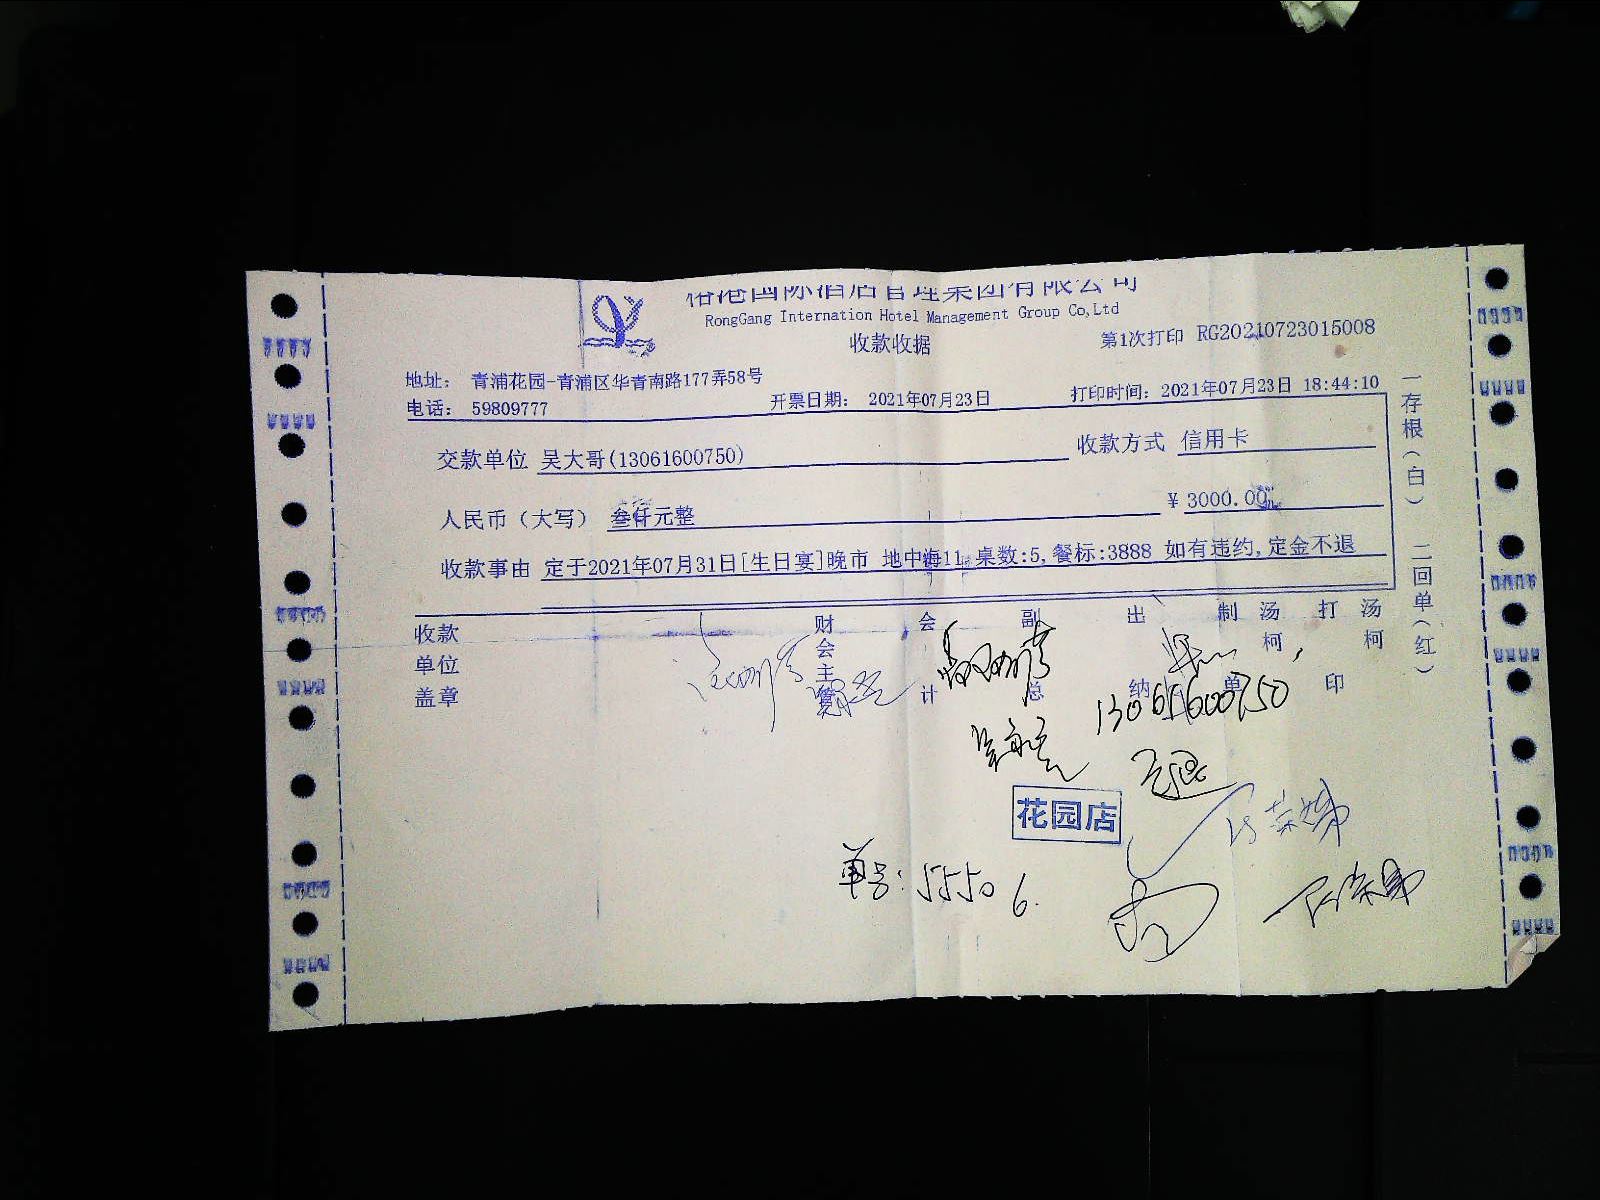 国际酒店管理集团有限公司
RongGang Internation Hotel Management Group Co,Ltd
收款收据
第1次打印 RG20210723015008
地址： 青浦花园-青浦区华青南路177弄58号
电话： 59809777
开票日期： 2021年07月23日
打印时间：2021年07月23日 18:44:10
交款单位 吴大哥(13061600750)
收款方式 信用卡
人民币（大写） 叁仟元整
¥ 3000.00
收款事由 定于2021年07月31日[生日宴]晚市 地中海11,桌数:5,餐标:3888 如有违约,定金不退
收款单位盖章
财会主管
会计
副总
出纳
制单 汤柯
打印 汤柯
13061600750
花园店
单号: 55506.
一存根（白） 二回单（红）